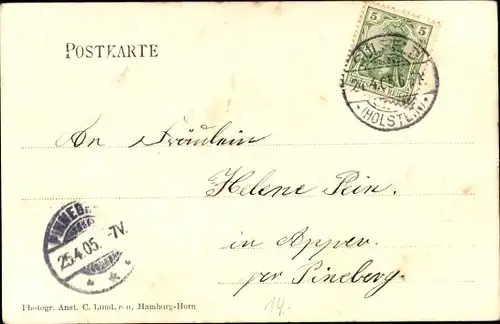 POSTKARTE
5 5
(HOLSTEIN)
An Fräulein
Helene Pein.
in Appen.
per Pineberg.
PINNEB
25.4.05. -7V.
Photogr. Anst. C. Lund, Hamburg-Horn
14.